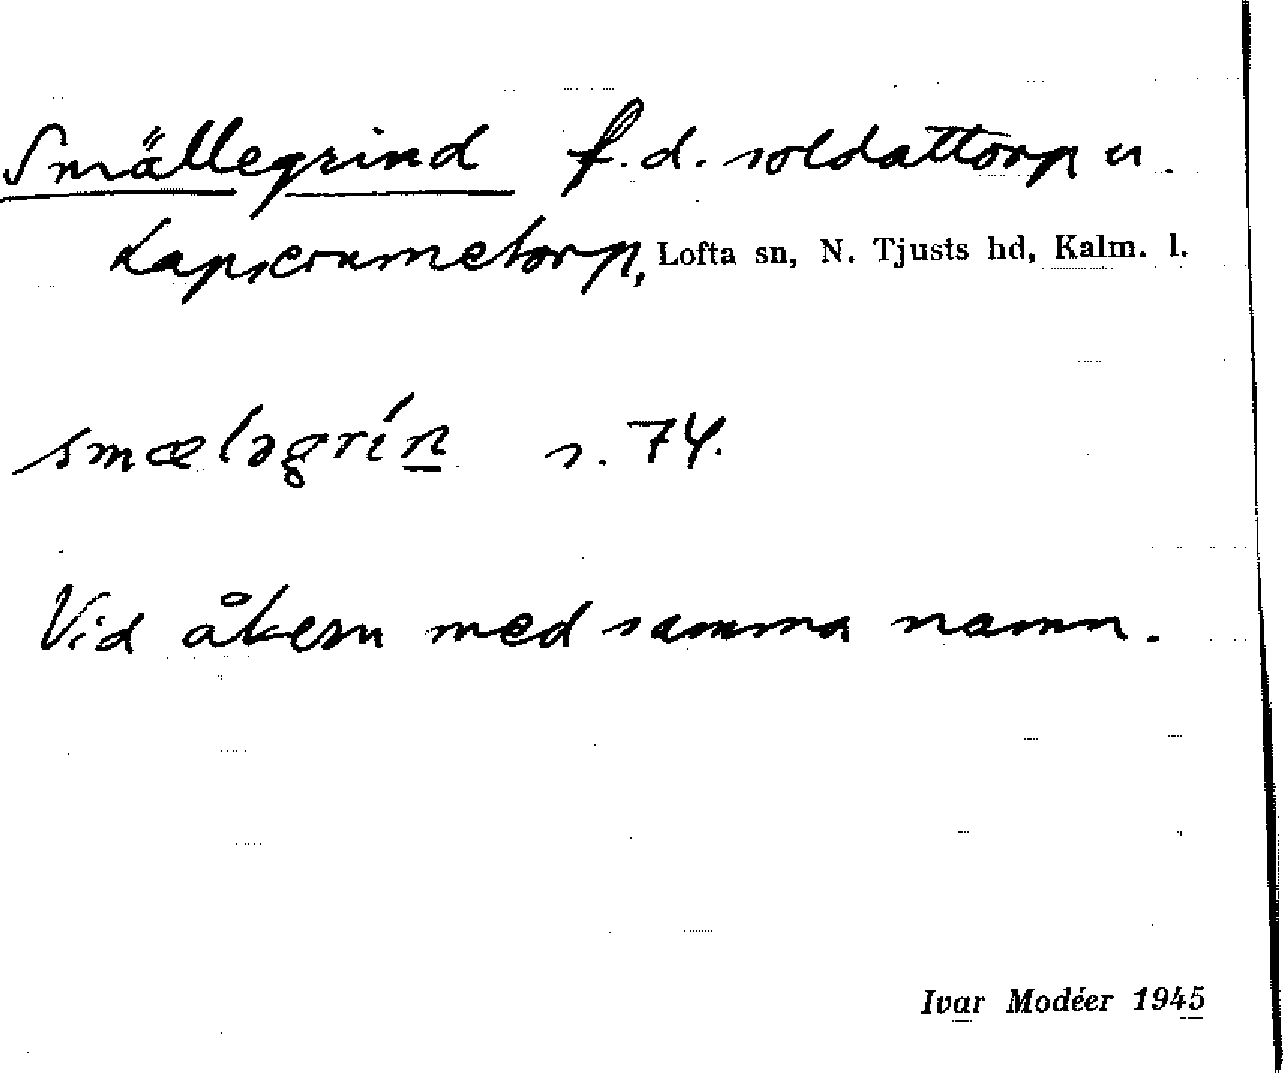 Smällegrind f.d. soldattorp u.
Lofta sn, N. Tjusts hd, Kalm. l.
smæləgrín s. 74.
Vid åkern med samma namn.
Ivar Modéer 1945